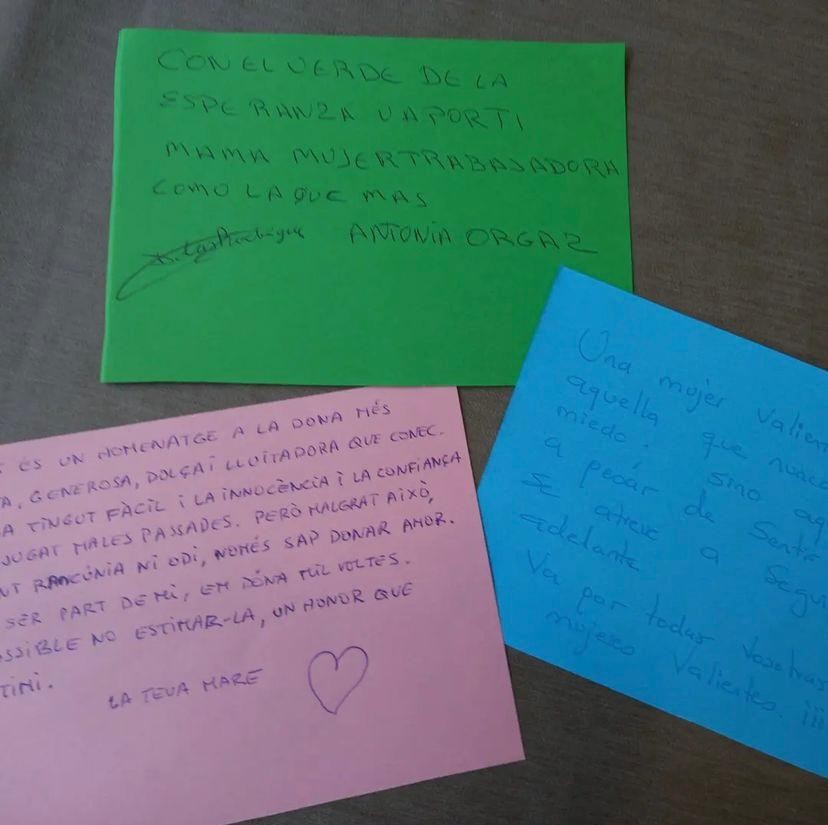 CON EL VERDE DE LA
ESPERANZA VA POR TI
MAMA MUJER TRABAJADORA
COMO LA QUE MAS
ANTONIA ORGAZ
Una mujer valien
aquella que nunca
miedo. sino aq
a pesar de senti
se atreve a segui
adelante
Va por todas vosotras
mujeres valientes. ¡¡¡
ÉS UN HOMENATGE A LA DONA MÉS
TA, GENEROSA, DOLÇA I LLUITADORA QUE CONEC.
A TINGUT FÀCIL I LA INNOCÈNCIA I LA CONFIANÇA
JUGAT MALES PASSADES. PERÒ MALGRAT AIXÒ,
NT RANCÚNIA NI ODI, NOMÉS SAP DONAR AMOR.
SER PART DE MI, EM DÓNA MIL VOLTES.
OSSIBLE NO ESTIMAR-LA, UN HONOR QUE
TIMI.
LA TEVA MARE